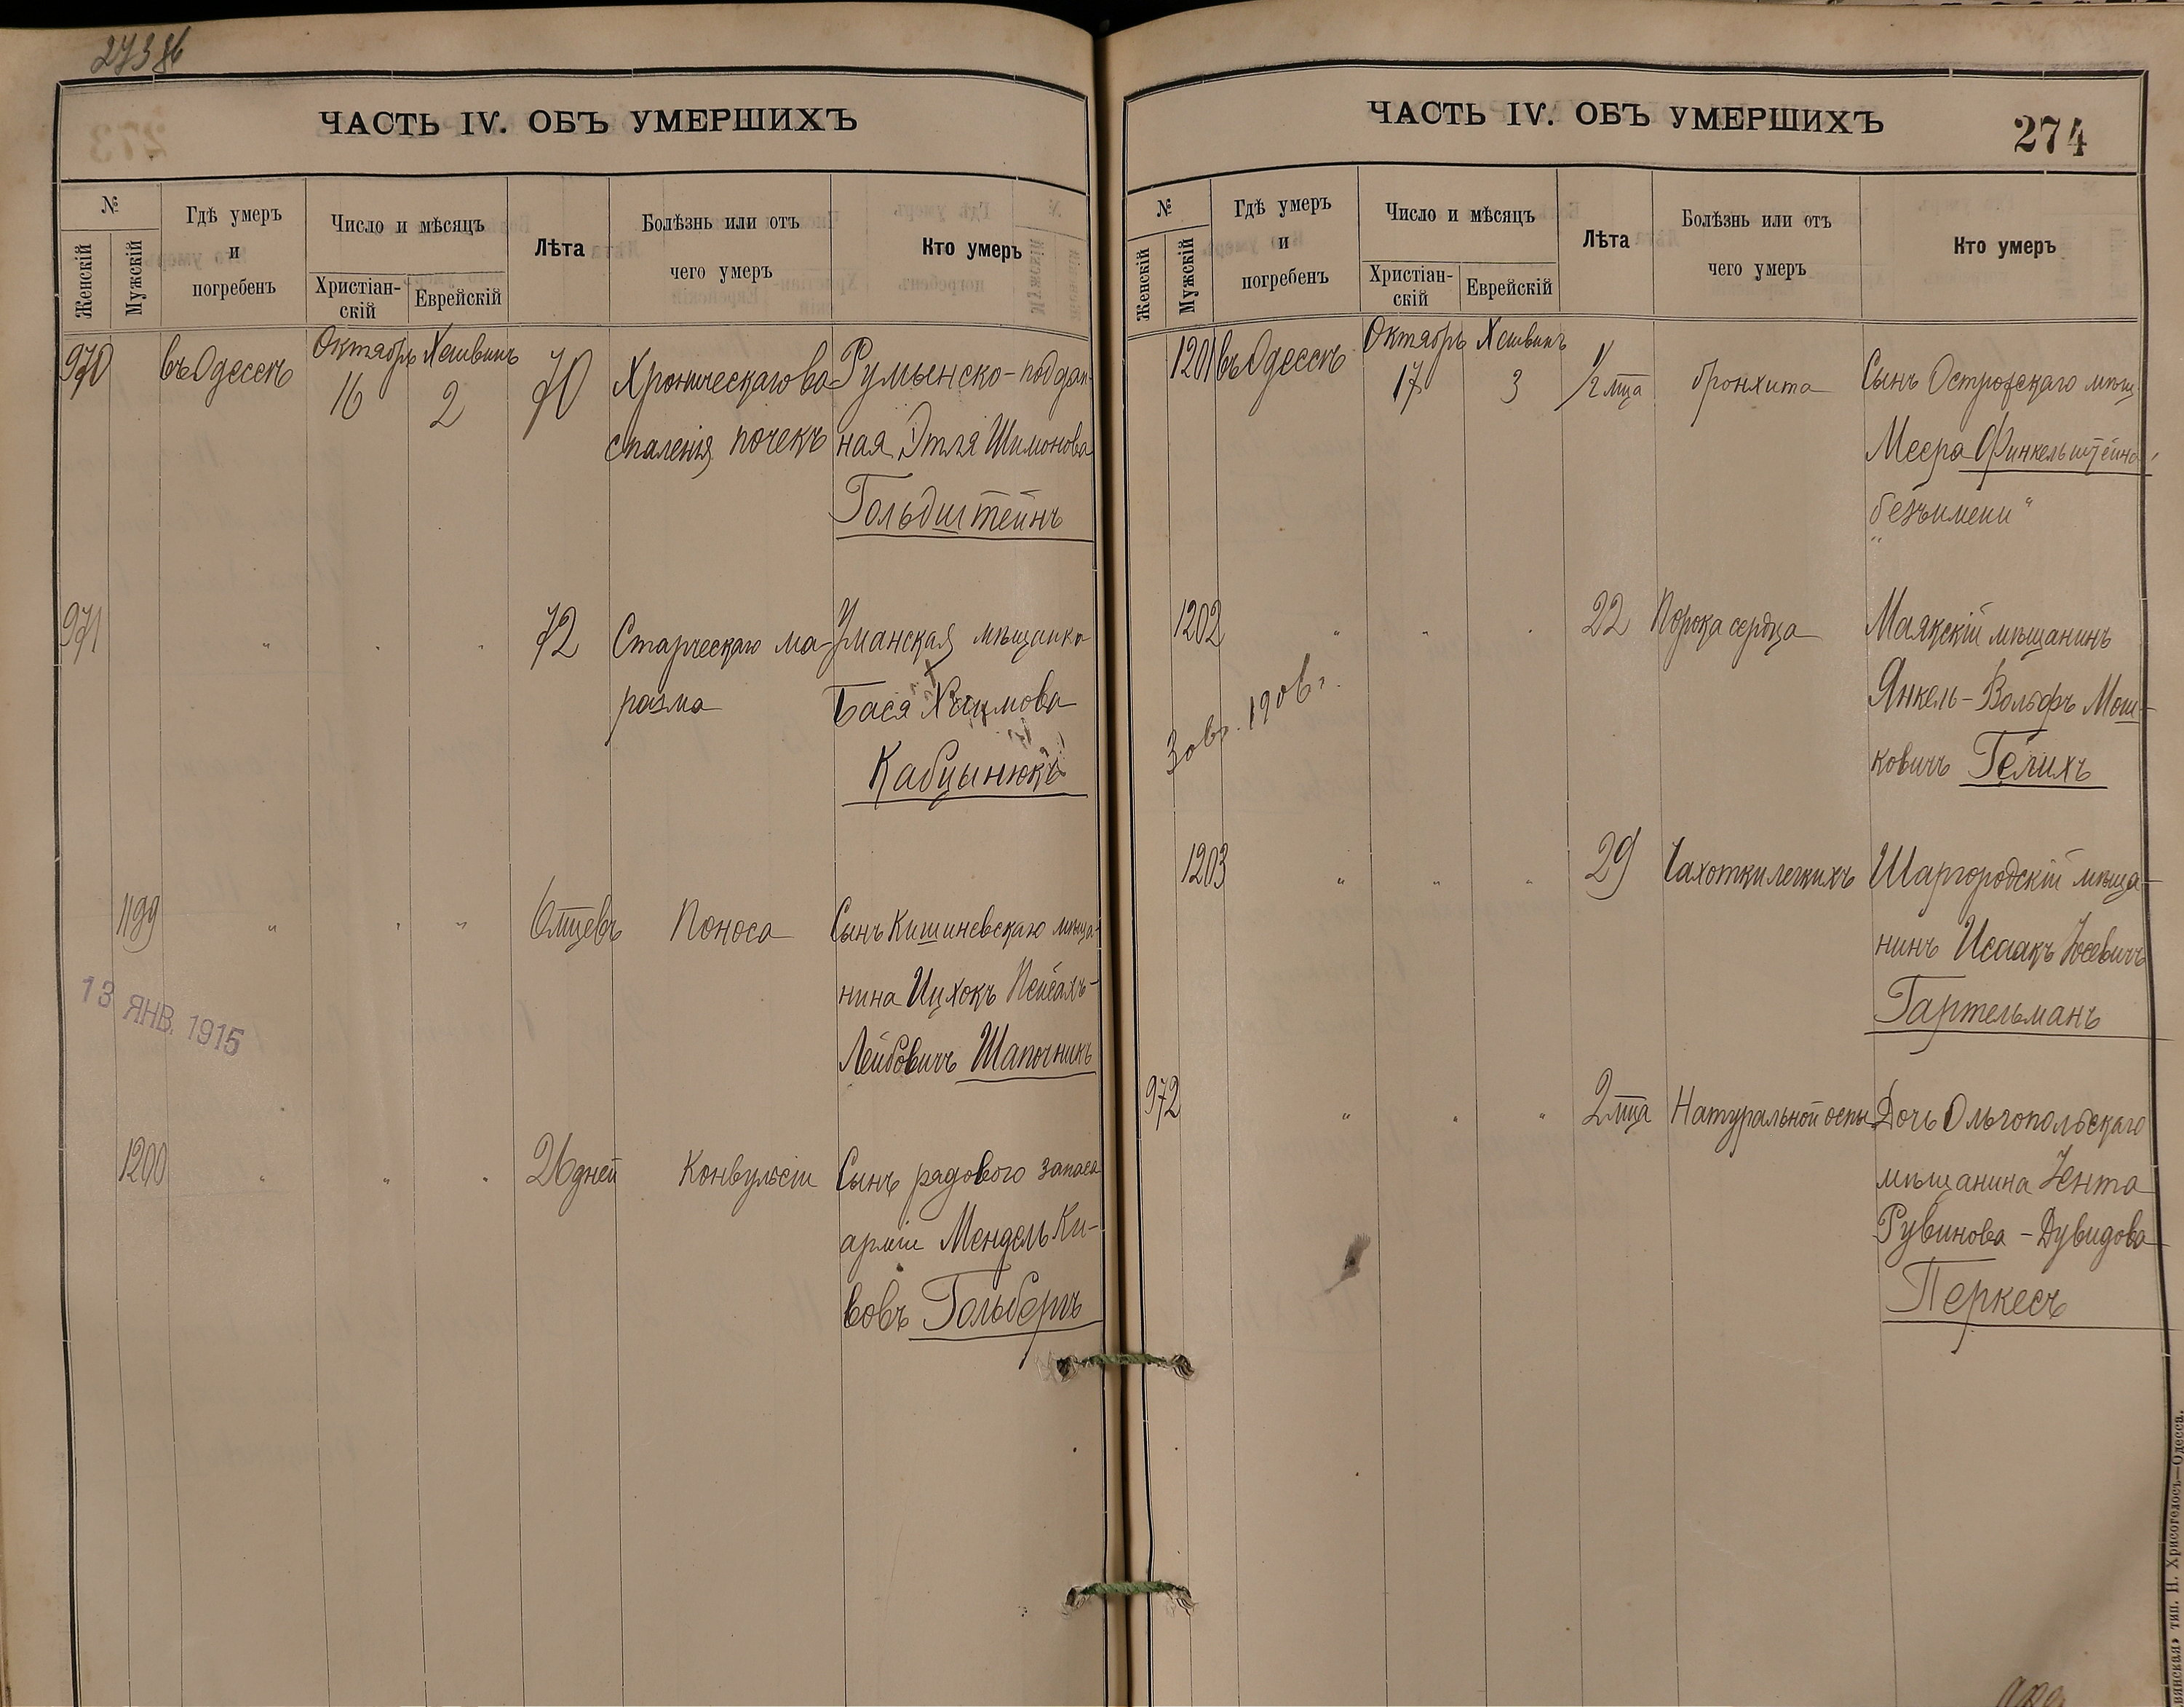 273 об
ЧАСТЬ IV. ОБЪ УМЕРШИХЪ
№
Женскій
Мужскій
Гдѣ умеръ
и
погребенъ
Число и мѣсяцъ
Христіан-
скій
Еврейскій
Лѣта
Болѣзнь или отъ
чего умеръ
Кто умеръ
970 въ Одессѣ Октябрь 16 Хешвинъ 2 70 Хроническаго во- Румынско-поддан-
спаленія почекъ ная Этля Шимонова
Гольдштейнъ
971 " " " 72 Старческаго ма- Уманская мѣщанка
разма Бася Хаимова
Кабцынюкъ
1199 " " " 6 мцевъ Поноса Сынъ Кишиневскаго мѣща-
нина Ицхокъ Пейсахъ-
Лейбовичъ Шапочникъ
13 ЯНВ. 1915
1200 " " " 26 дней Конвульсіи Сынъ рядового запаса
арміи Мендель Ки-
вовъ Гольбергъ
ЧАСТЬ IV. ОБЪ УМЕРШИХЪ
274
№
Женскій
Мужскій
Гдѣ умеръ
и
погребенъ
Число и мѣсяцъ
Христіан-
скій
Еврейскій
Лѣта
Болѣзнь или отъ
чего умеръ
Кто умеръ
1201 въ Одессѣ Октябрь 17 Хешвинъ 3 1/2 мца бронхита Сынъ Острожскаго мѣщ.
Меера Финкельштейна
"безъ имени"
1202 " " " 22 Порока сердца Маякскій мѣщанинъ
Янкель-Вольфъ Мош-
ковичъ Гелихъ
1906 г.
1203 " " " 29 Чахотки легкихъ Шаргородскій мѣща-
нинъ Исаакъ Іосевичъ
Гартельманъ
972 " " " 2 мца Натуральной оспы Дочь Ольгопольскаго
мѣщанина Ента
Рувинова-Дувидова
Перкесъ
тип. Н. Хрисогелосъ—Одесса.